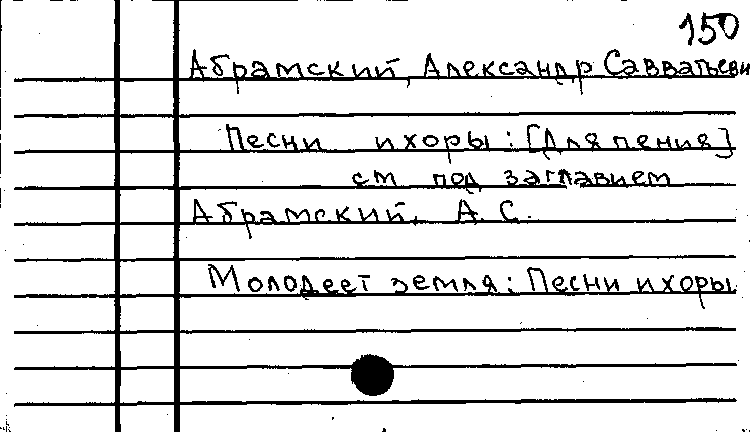 150
Абрамский, Александр Савватьеви
Песни и хоры: [Для пения]
см под заглавием
Абрамский, А. С.
Молодеет земля: Песни и хоры